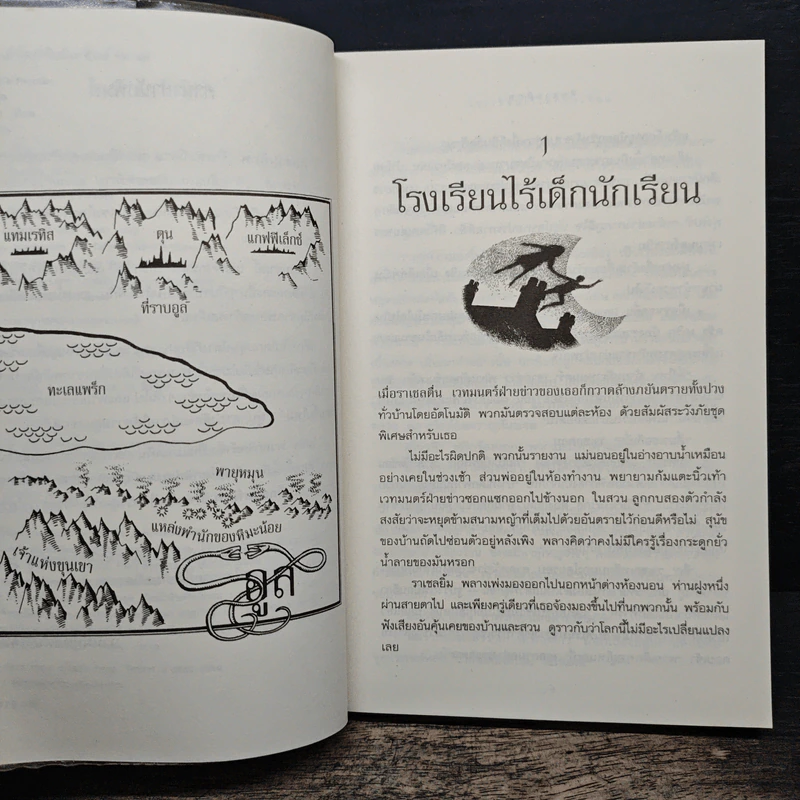 แทมเรทิส
ดุน
แกฟฟีเล็กซ์
ที่ราบอูล
ทะเลแพร็ก
พายุหมุน
แหล่งพำนักของหิมะน้อย
เจ้าแห่งขุนเขา
อูล
1
โรงเรียนไร้เด็กนักเรียน
เมื่อราเชลตื่น เวทมนตร์ฝ่ายข่าวของเธอก็กวาดล้างภยันตรายทั้งปวง
ทั่วบ้านโดยอัตโนมัติ พวกมันตรวจสอบแต่ละห้อง ด้วยสัมผัสระวังภัยชุด
พิเศษสำหรับเธอ
ไม่มีอะไรผิดปกติ พวกนั้นรายงาน แม่นอนอยู่ในอ่างอาบน้ำเหมือน
อย่างเคยในช่วงเช้า ส่วนพ่ออยู่ในห้องทำงาน พยายามก้มแตะนิ้วเท้า
เวทมนตร์ฝ่ายข่าวซอกแซกออกไปข้างนอก ในสวน ลูกกบสองตัวกำลัง
สงสัยว่าจะหยุดข้ามสนามหญ้าที่เต็มไปด้วยอันตรายไว้ก่อนดีหรือไม่ สุนัข
ของบ้านถัดไปซ่อนตัวอยู่หลังเพิง พลางคิดว่าคงไม่มีใครรู้เรื่องกระดูกยั่ว
น้ำลายของมันหรอก
ราเชลยิ้ม พลางเพ่งมองออกไปนอกหน้าต่างห้องนอน ห่านฝูงหนึ่ง
ผ่านสายตาไป และเพียงครู่เดียวที่เธอจ้องมองขึ้นไปที่นกพวกนั้น พร้อมกับ
ฟังเสียงอันคุ้นเคยของบ้านและสวน ดูราวกับว่าโลกนี้ไม่มีอะไรเปลี่ยนแปลง
เลย